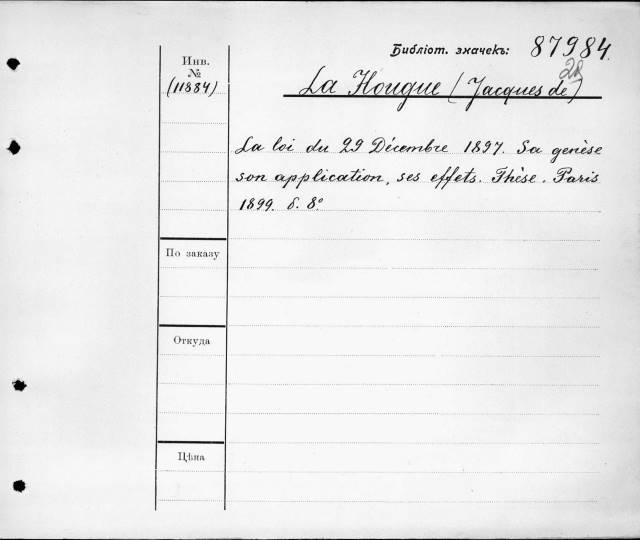 Библіот. значекъ: 87984.
28
Инв.
№
(11884)
La Hougue (Jacques de)
La loi du 29 Décembre 1897. Sa genèse
son application, ses effets. Thèse. Paris
1899. б. 8º
По заказу
Откуда
Цѣна